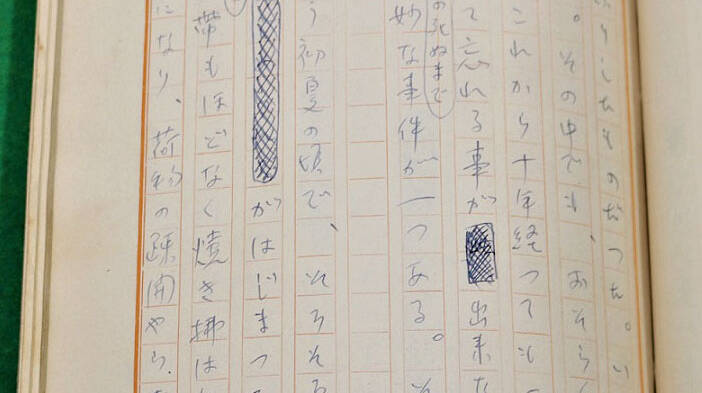 らしたものだつた。い
。その中でも、おそらく
これから十年経つても
て忘れる事が出来な
の死ぬまで
妙な事件が一つある。そ
う初夏の頃で、そろそろ
がはじまつ
帯もほどなく焼き拂は
になり、荷物の疎開やら、